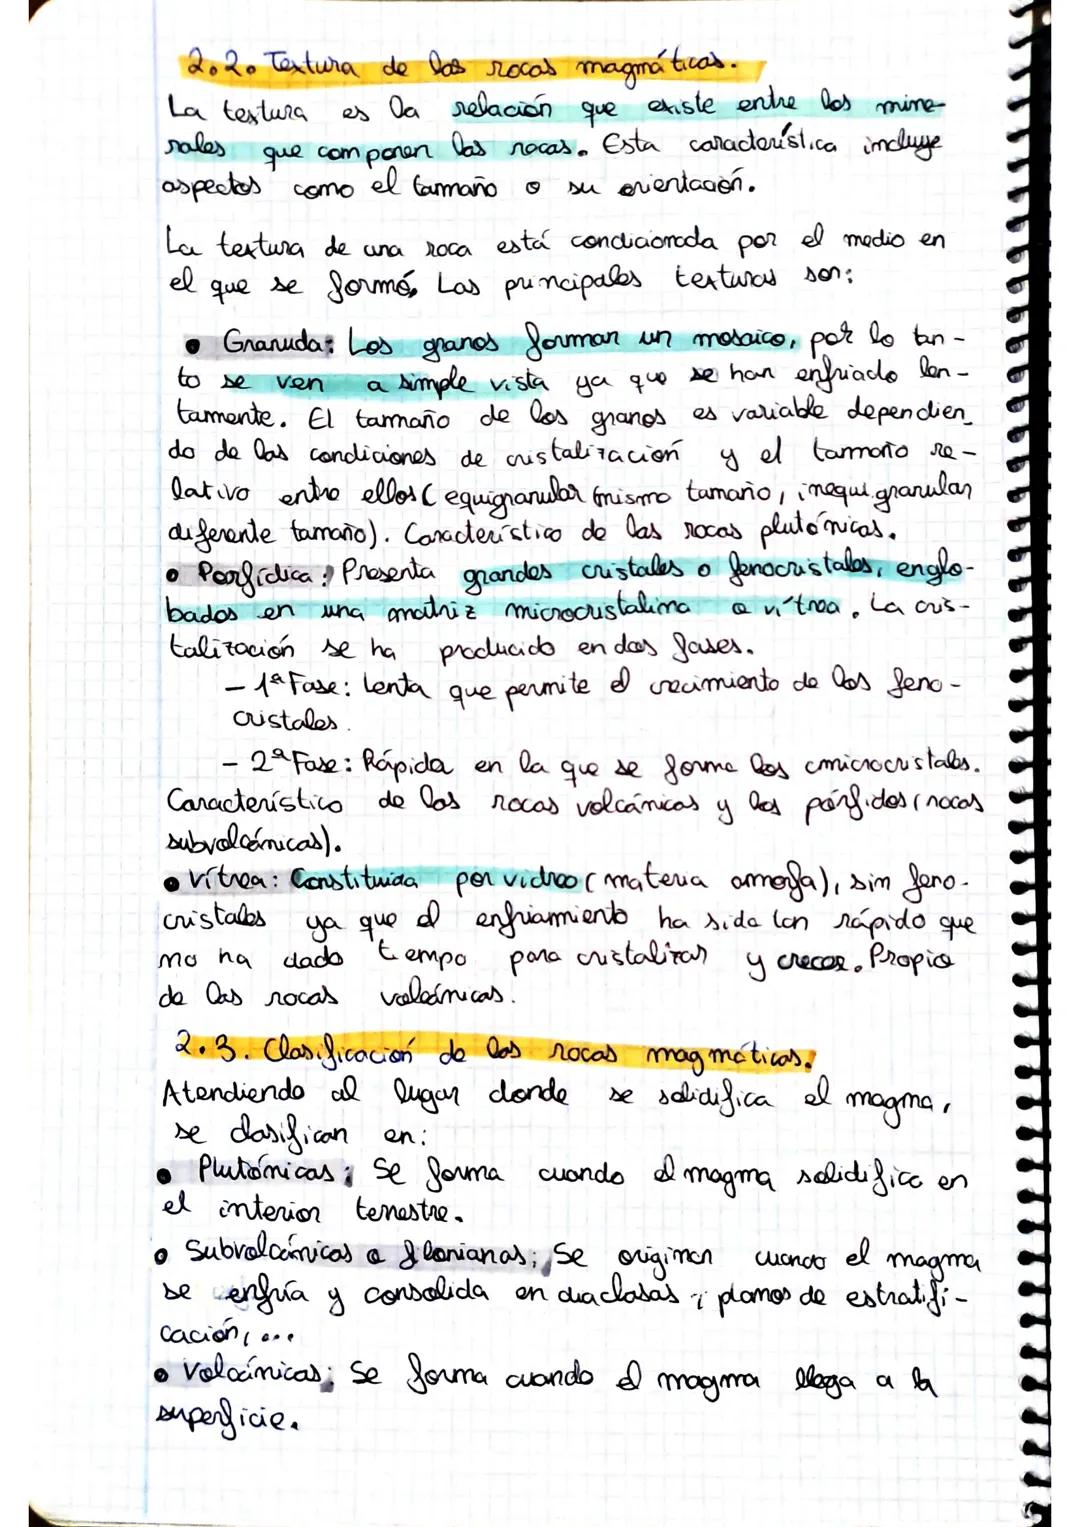 2.2. Textura de las rocas magmáticas.
La textura es la relación que existe entre los mine-
rales que componen las rocas. Esta característica incluye
aspectos como el tamaño o su orientación.
La textura de una roca está condicionada por el medio en
el que se formó. Las principales texturas son:
• Granuda: Los granos forman un mosaico, por lo tan-
to se ven a simple vista ya que se han enfriado len-
tamente. El tamaño de los granos es variable dependien_
do de las condiciones de cristalización y el tamaño re-
lativo entre ellos (equigranular mismo tamaño, inequigranular
diferente tamaño). Característico de las rocas plutónicas.
• Porfídica: Presenta grandes cristales o fenocristales, englo-
bados en una matriz microcristalina o vítrea. La cris-
talización se ha producido en dos fases.
- 1ª Fase: Lenta que permite el crecimiento de los feno-
cristales.
- 2ª Fase: Rápida en la que se forma los microcristales.
Característico de las rocas volcánicas y los pórfidos (rocas
subvolcánicas).
• Vítrea: Constituida por vidrio (materia amorfa), sin feno-
cristales ya que el enfriamiento ha sido tan rápido que
no ha dado tempo para cristalizar y crecer. Propio
de las rocas volcánicas.
2.3. Clasificación de las rocas magmáticas.
Atendiendo al lugar donde se solidifica el magma,
se clasifican en:
• Plutónicas: Se forma cuando el magma solidifica en
el interior terrestre.
• Subvolcánicas o filonianas: Se originan cuando el magma
se enfría y consolida en diaclasas, planos de estratifi-
cación, ...
• Volcánicas: Se forma cuando el magma llega a la
superficie.